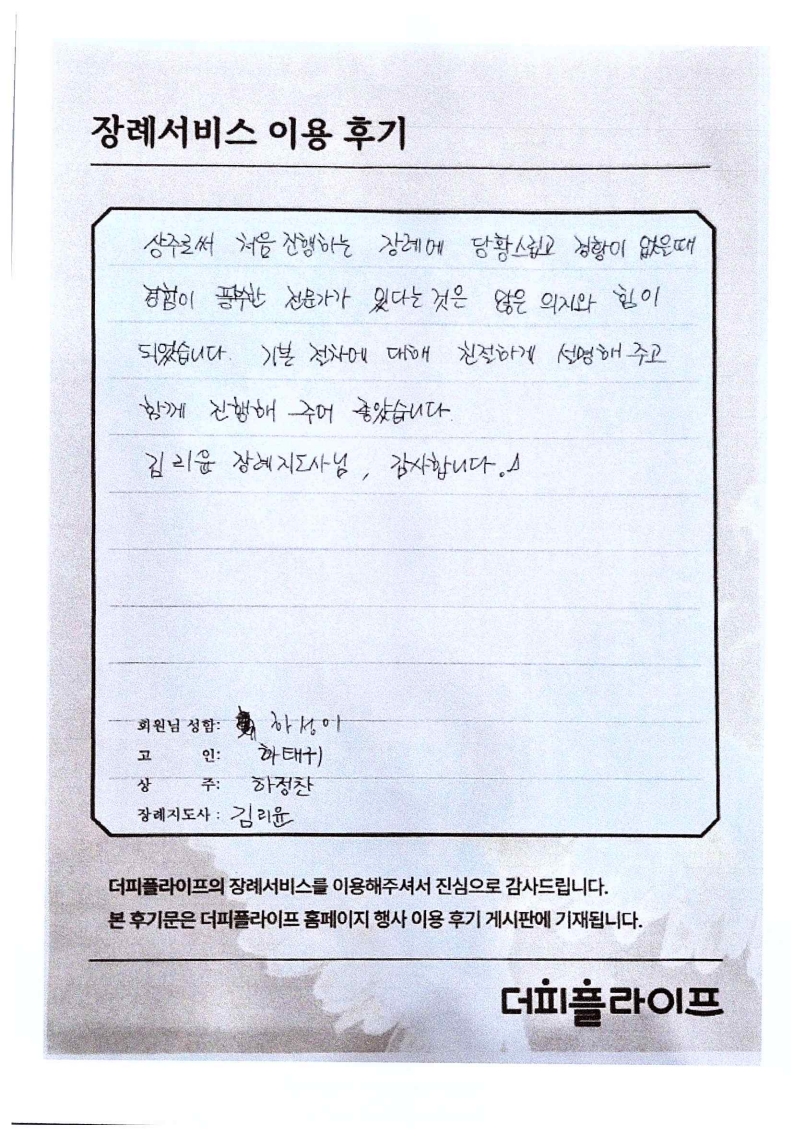 장례서비스 이용 후기
상주로써 처음 진행하는 장례에 당황스럽고 경황이 없을때
경험이 풍부한 전문가가 있다는 것은 많은 의지와 힘이
되었습니다. 기본 절차에 대해 친절하게 설명해 주고
함께 진행해 주어 좋았습니다.
김리윤 장례지도사님, 감사합니다.
회원님 성함: 하성이
고 인: 하태귀
상 주: 하정찬
장례지도사 : 김리윤
더피플라이프의 장례서비스를 이용해주셔서 진심으로 감사드립니다.
본 후기문은 더피플라이프 홈페이지 행사 이용 후기 게시판에 기재됩니다.
더피플라이프